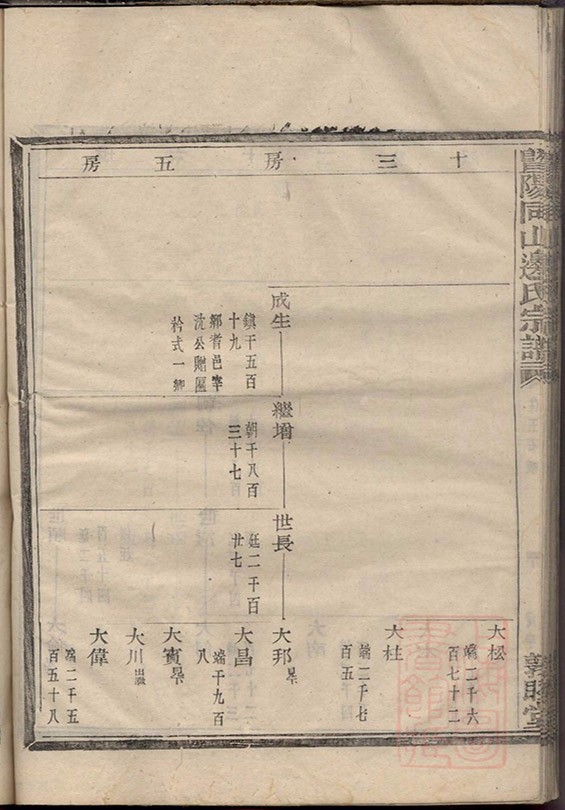 暨陽同山邊氏宗譜
敦睦堂
十三房五房
成生
鎮千五百
十九
鄉耆邑宰
沈公贈匾
矜式一鄉
繼增
朝千八百
三十七
世長
廷二千百
廿七
大松
端二千六
百七十二
大柱
端二千七
百五
大邦
大昌
端千九百
八
大賓
大川
大偉
端二千五
百五十八